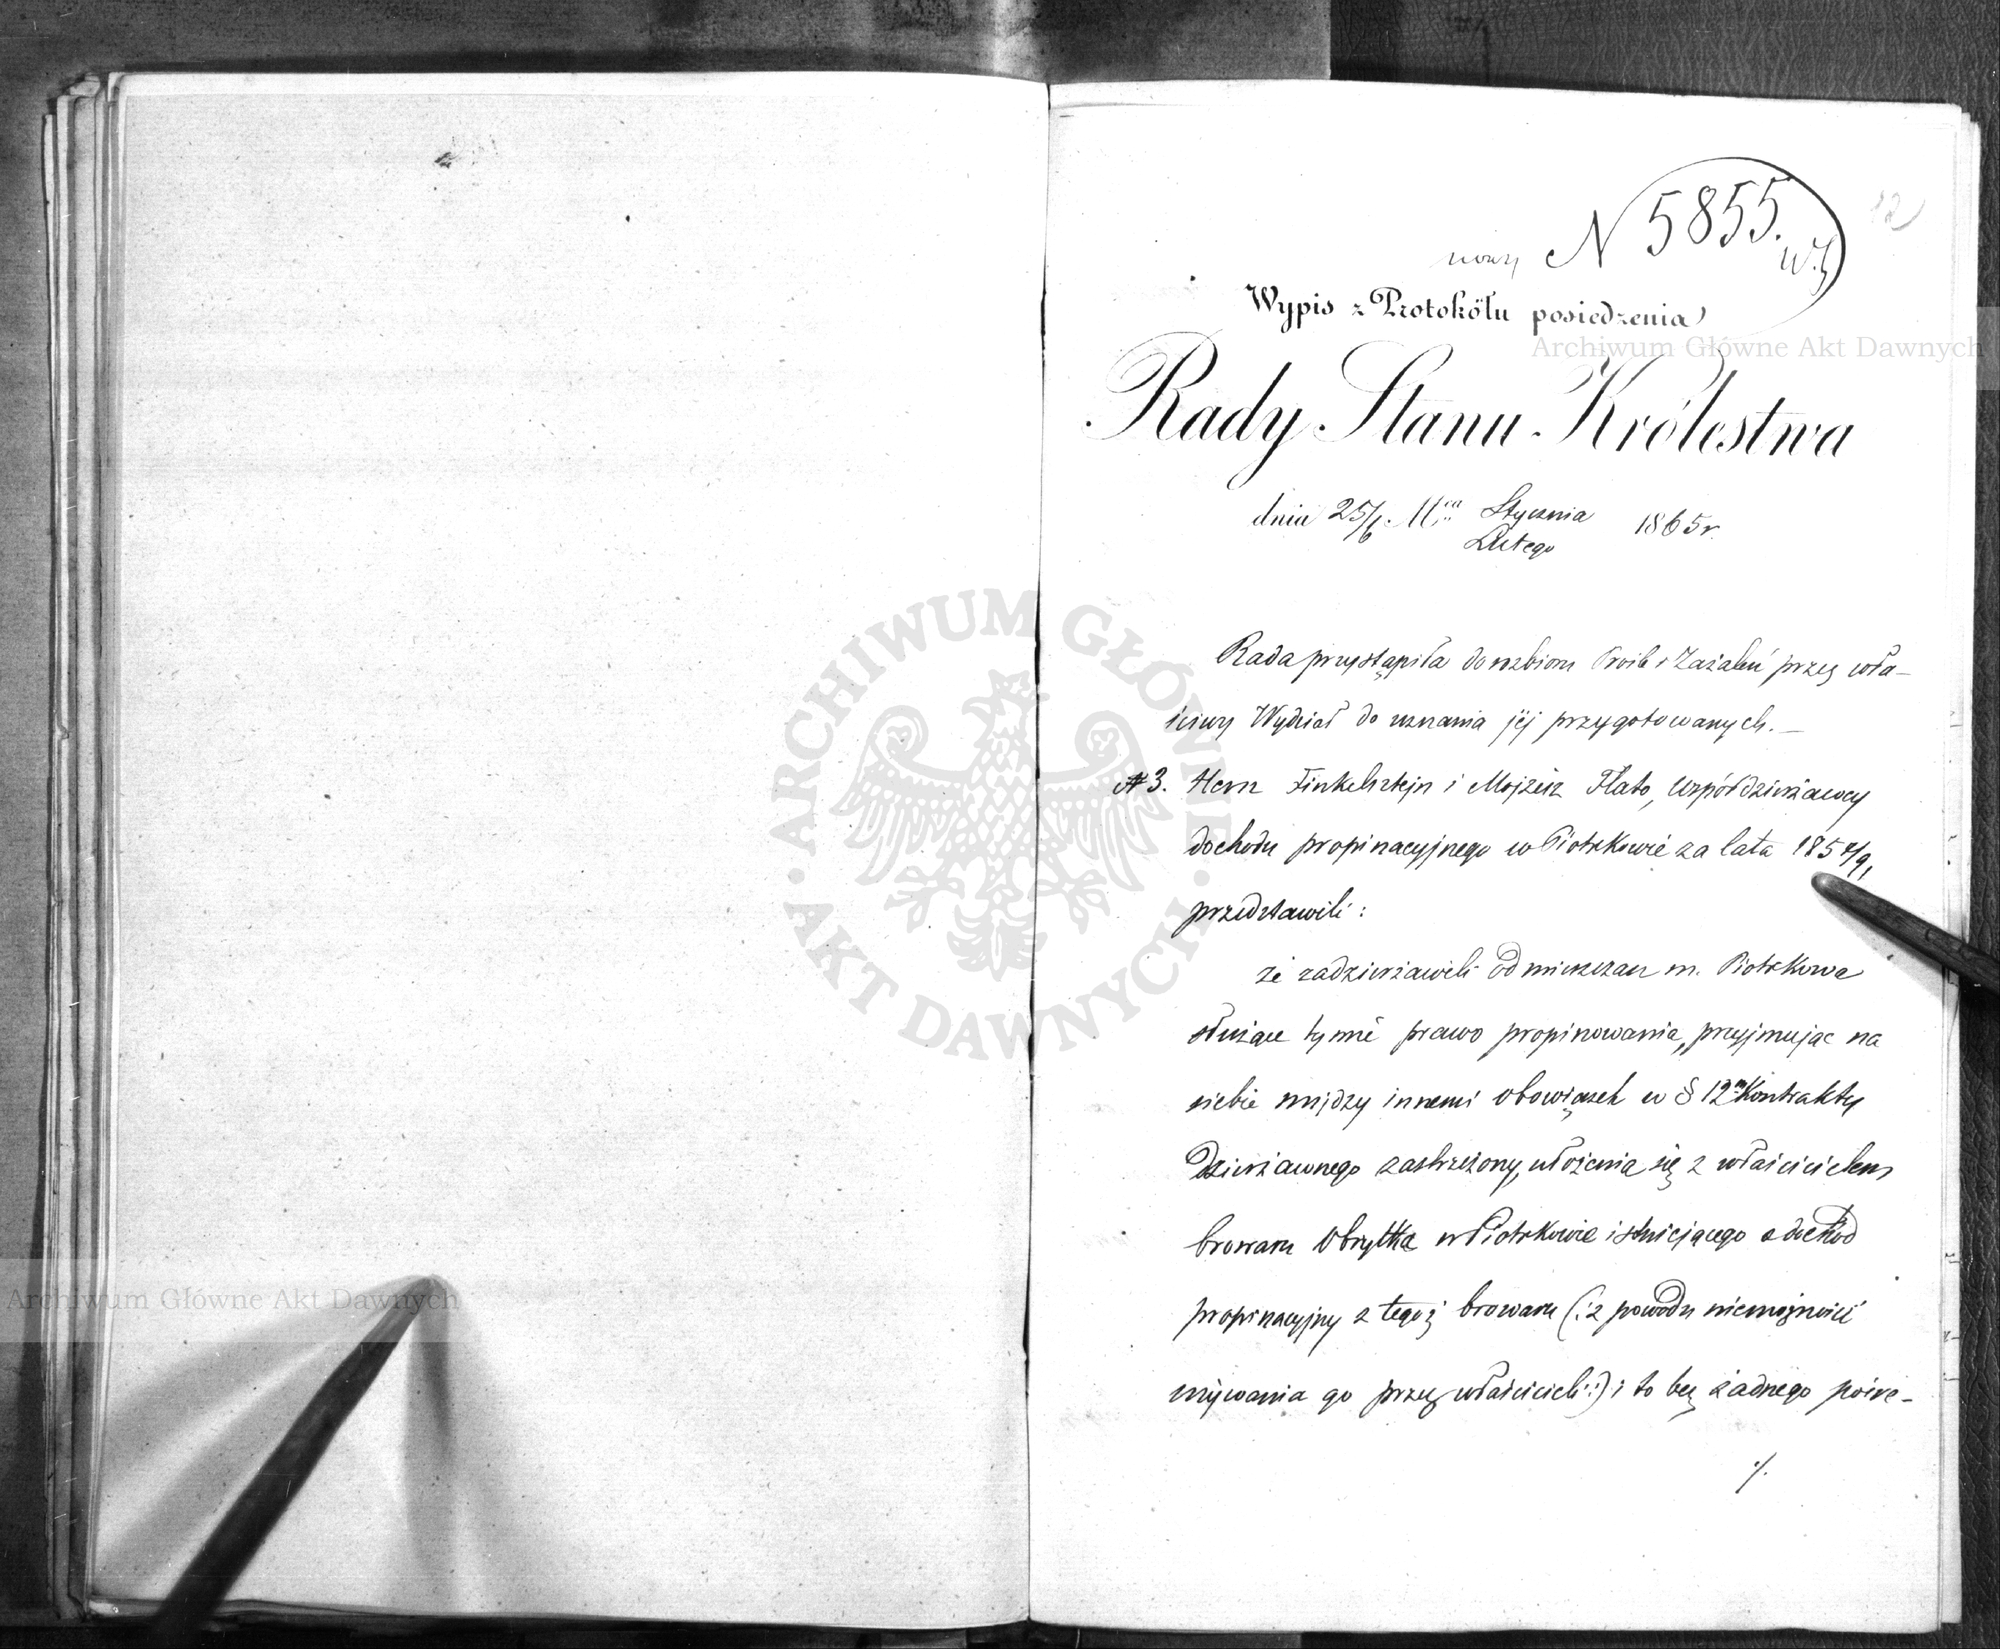 12
nowy N 5855.
Wypis z Protokółu posiedzenia
Rady Stanu Królestwa
dnia 25/6 Mca Stycznia
Lutego 1865 r.
Rada przystąpiła do rozbioru Próśb i Zażaleń przez wła-
ściwy Wydział do uznania jéj przygotowanych. —
N 3. Hersz Finkelsztejn i Mojżesz Flato, współdzierżawcy
dochodu propinacyjnego w Piotrkowie za lata 1857/9,
przedstawili:
że zadzierżawili od mieszczan m. Piotrkowa
służące tymże prawo propinowania, przyjmując na
siebie między innemi obowiązek w § 12m Kontraktu
Dzierżawnego zastrzeżony, ułożenia się z właścicielem
browaru Obrytka w Piotrkowie istniejącego o dochód
propinacyjny z tegoż browaru (: z powodu niemożności
używania go przez właścicieli :) i to bez żadnego pośre-
./.
Archiwum Główne Akt Dawnych
Archiwum Główne Akt Dawnych
ARCHIWUM GŁÓWNE · AKT DAWNYCH ·